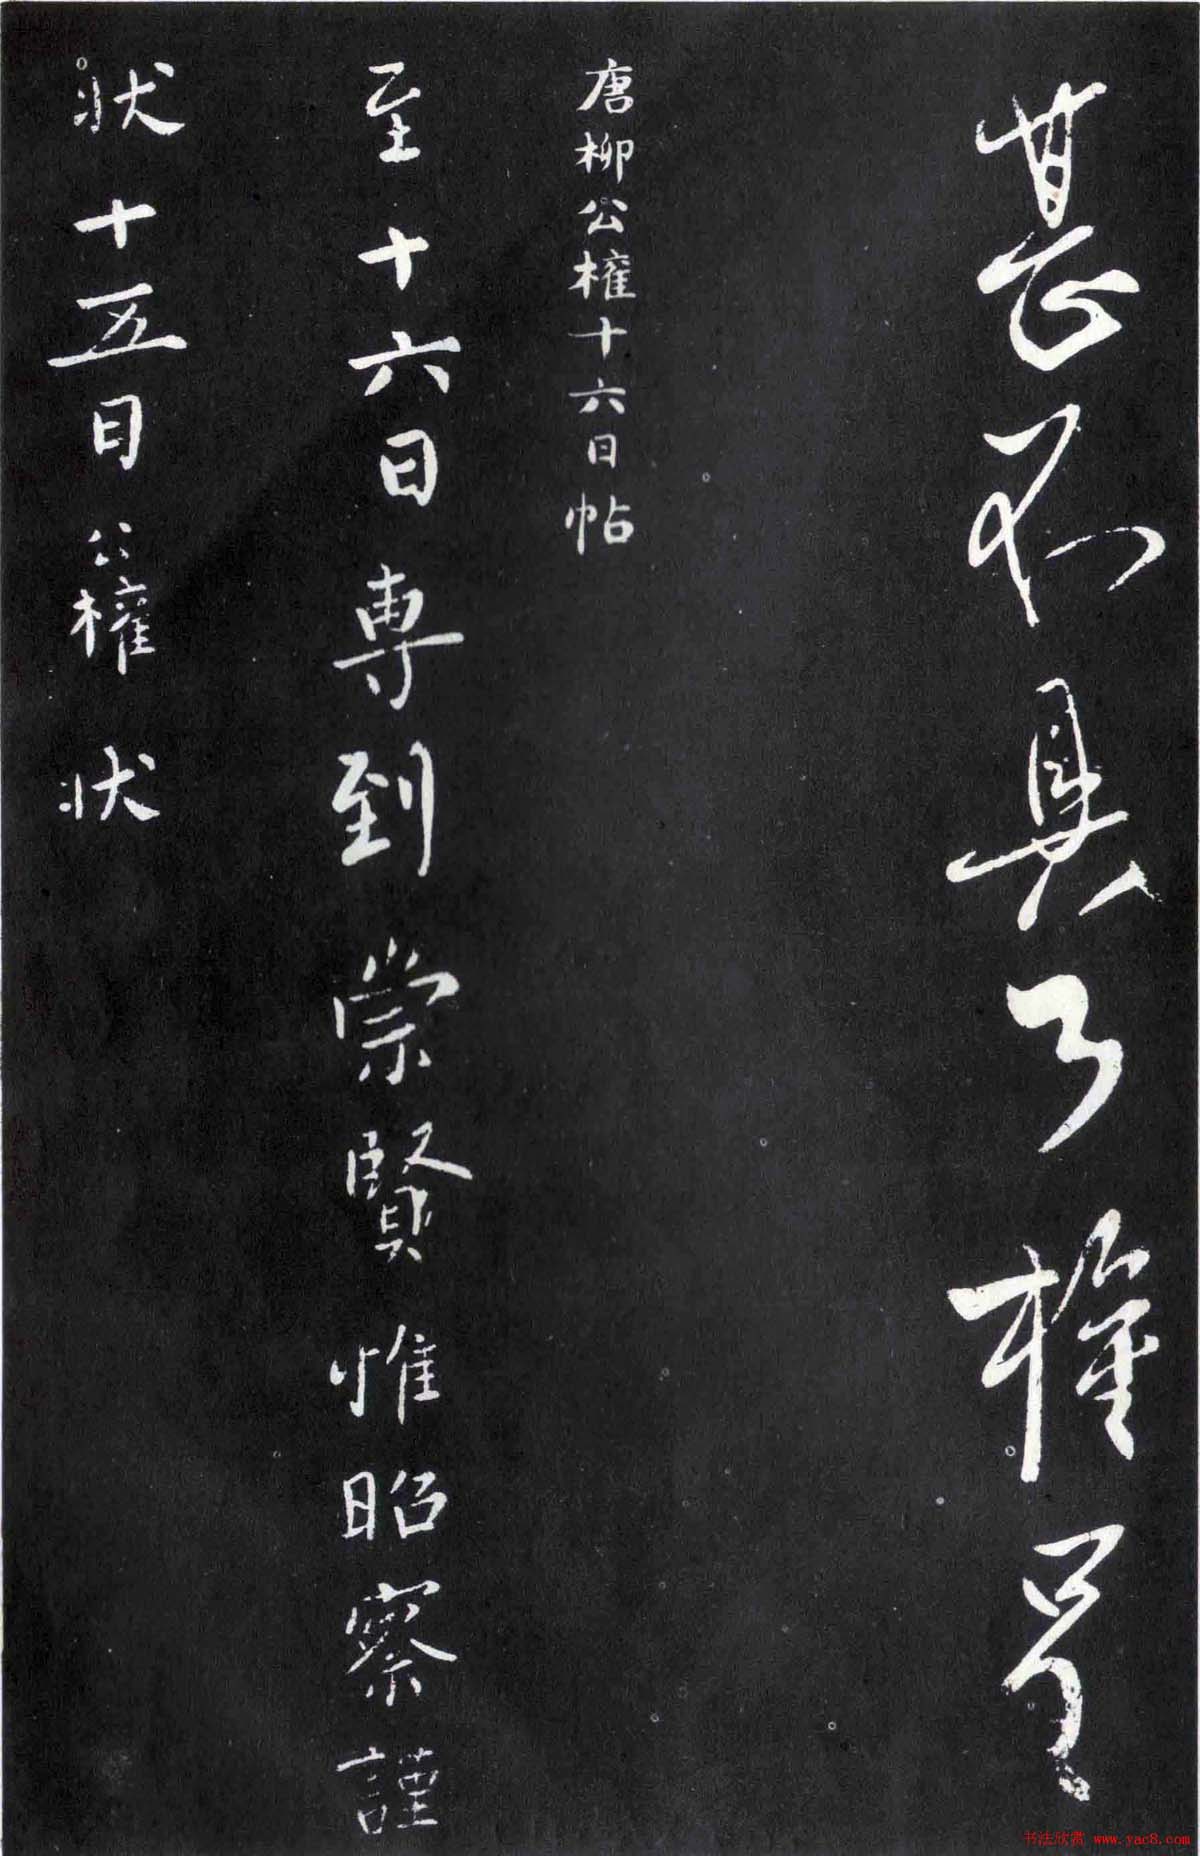 甚不具 權呈
唐柳公權十六日帖
至十六日專到崇賢惟昭察謹
狀十五日公權狀
书法欣赏 www.yac8.com